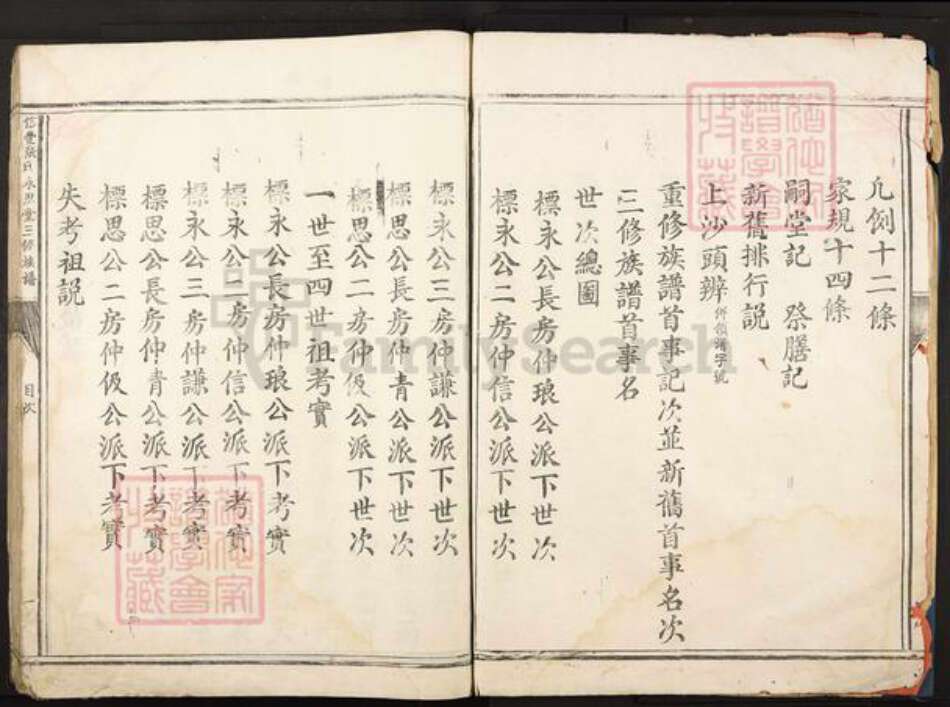 凡例十二條
家規十四條
嗣堂記 祭膳記
新舊排行說
上沙頭辨
重修族譜首事記次並新舊首事名次
三修族譜首事名
世次總圖
標永公長房仲琅公派下世次
標永公二房仲信公派下世次
標永公三房仲謙公派下世次
標思公長房仲青公派下世次
標思公二房仲伋公派下世次
一世至四世祖考實
標永公長房仲琅公派下考實
標永公二房仲信公派下考實
標永公三房仲謙公派下考實
標思公長房仲青公派下考實
標思公二房仲伋公派下考實
失考祖説
張氏永思堂三修族譜
目次
一
FamilySearch